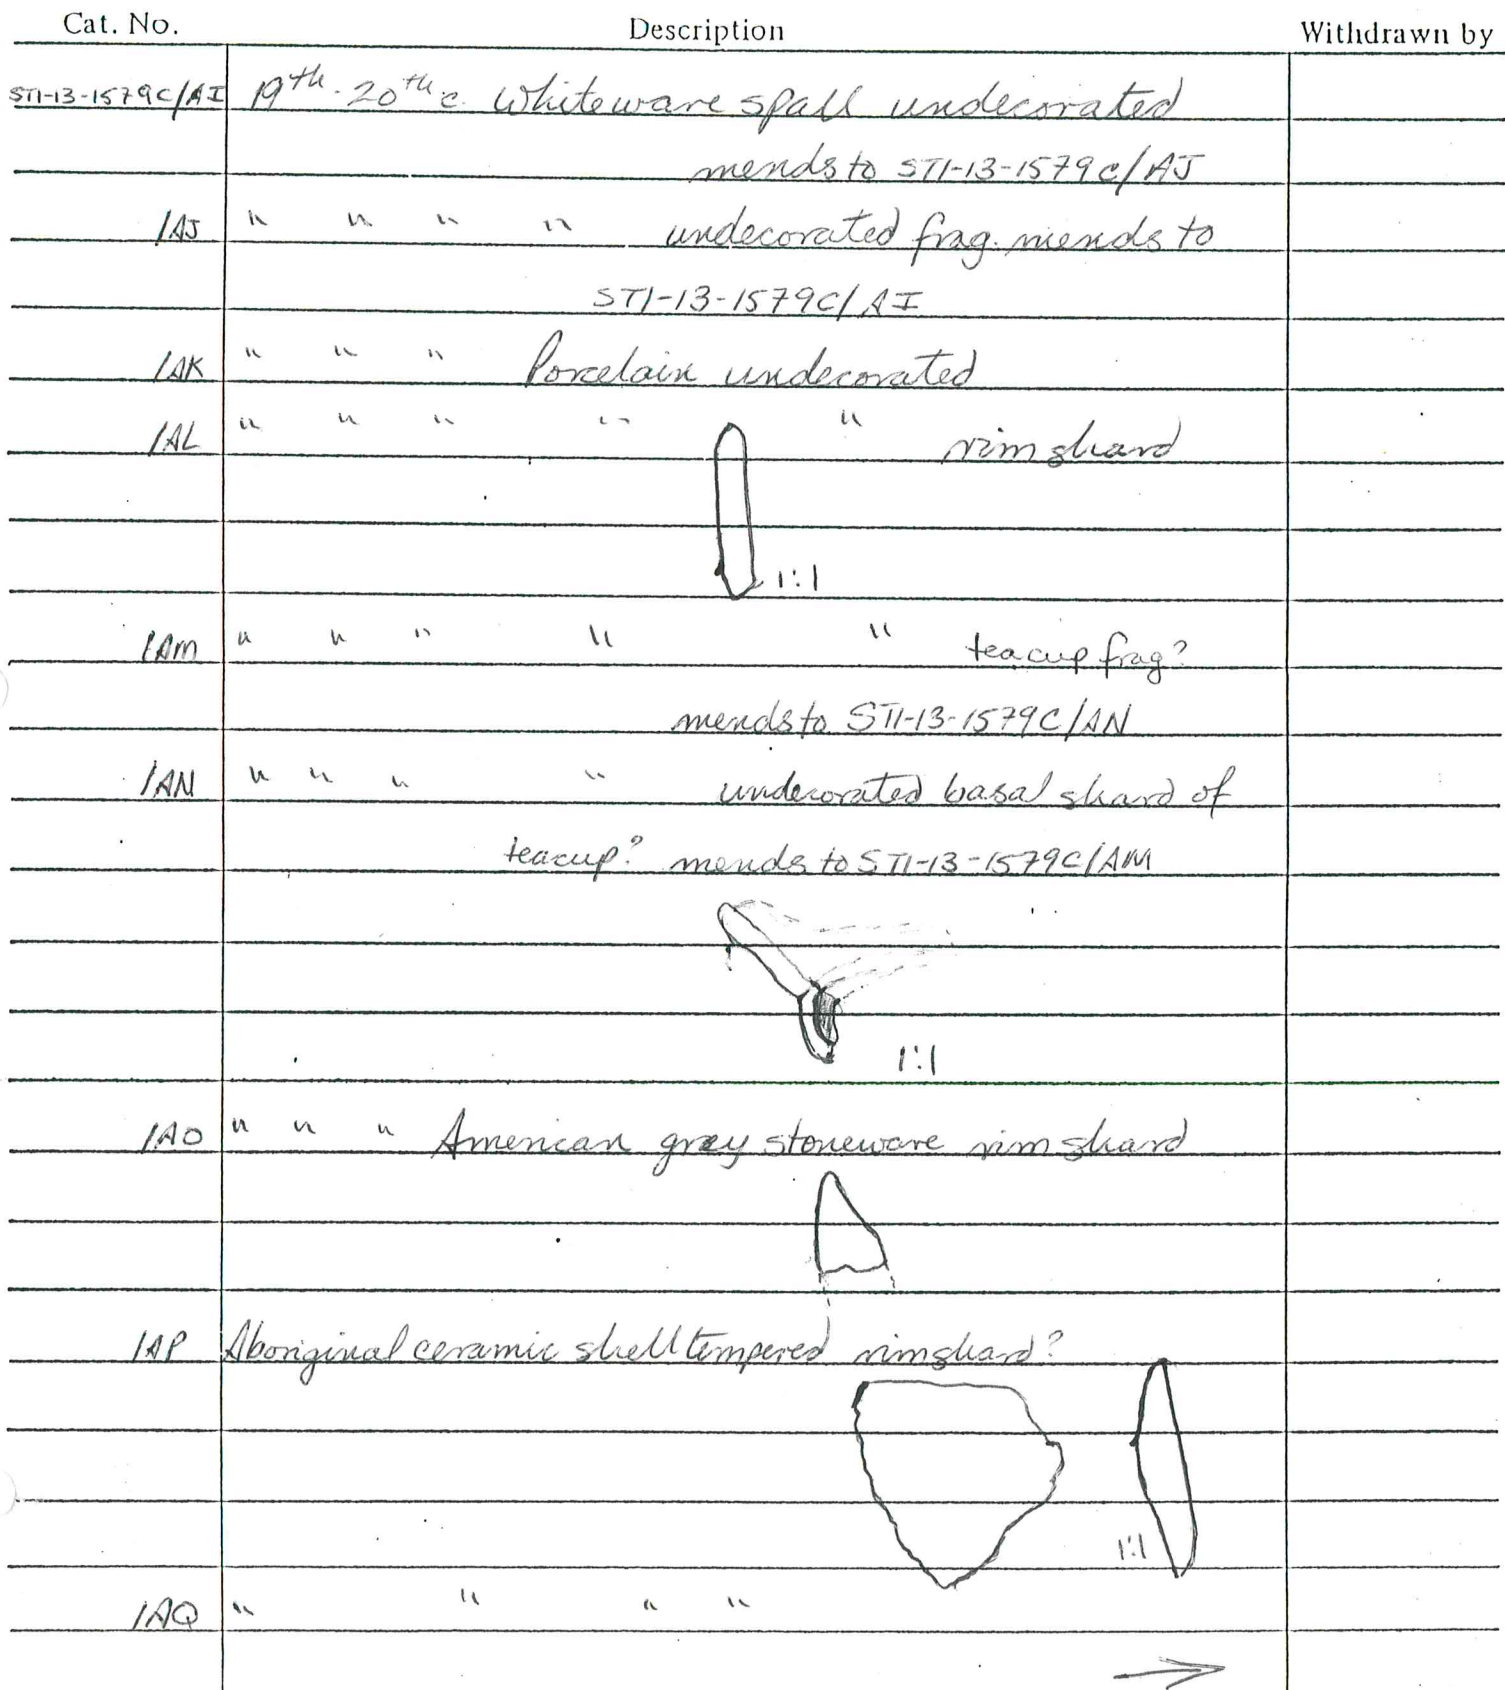 Cat. No. Description Withdrawn by
STI-13-1579C/AI 19th-20th c. Whiteware spall undecorated
mends to STI-13-1579C/AJ
/AJ " " " " undecorated frag. mends to
STI-13-1579C/AI
/AK " " " Porcelain undecorated
/AL " " " " " rim shard
1:1
/AM " " " " " teacup frag?
mends to STI-13-1579C/AN
/AN " " " " undecorated basal shard of
teacup? mends to STI-13-1579C/AM
1:1
/AO " " " American grey stoneware rim shard
/AP Aboriginal ceramic shell tempered rim shard?
1:1
/AQ " " " "